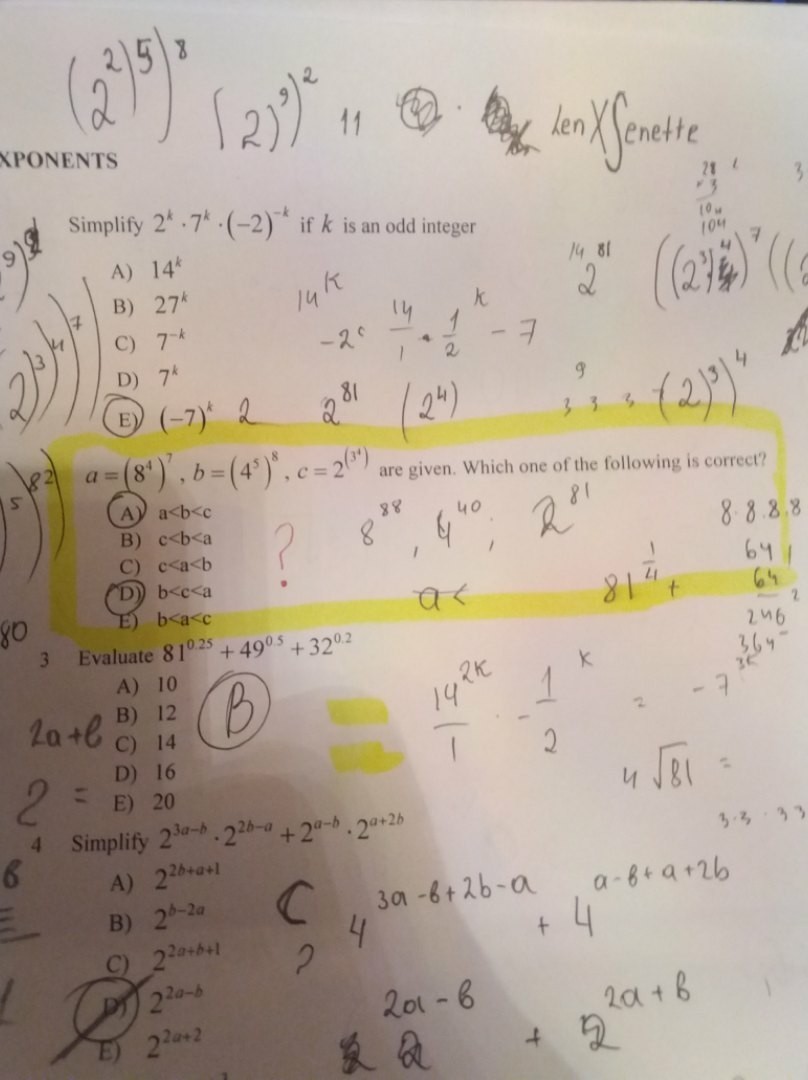 (2²)⁵)⁸
(2)⁹)² 11 LenXSenette
XPONENTS
28
3
104
104
Simplify 2ᵏ · 7ᵏ · (−2)⁻ᵏ if k is an odd integer
A) 14ᵏ
B) 27ᵏ
C) 7⁻ᵏ
D) 7ᵏ
E) (−7)ᵏ
14ᵏ
14/1 · 1/2 ᵏ − 7
2⁸¹ (2⁴)
9
3 3 3 (2)³)⁴
a = (8⁴)⁷, b = (4⁵)⁸, c = 2^(3⁴) are given. Which one of the following is correct?
A) a<b<c
B) c<b<a
C) c<a<b
D) b<c<a
E) b<a<c
?
8⁸⁸, 4⁴⁰; 2⁸¹
a <
81^(1/4) +
8·8·8·8
64
64
246
364
80
3 Evaluate 81^0.25 + 49^0.5 + 32^0.2
A) 10
B) 12
C) 14
D) 16
E) 20
B
14²ᵏ/1 · −1/2 ᵏ = −7
4√81 =
3·3·33
2a+b
2 =
4 Simplify 2^(3a−b) · 2^(2b−a) + 2^(a−b) · 2^(a+2b)
A) 2^(2b+a+1)
B) 2^(b−2a)
C) 2^(2a+b+1)
D) 2^(2a−b)
E) 2^(2a+2)
C
?
4^(3a−b+2b−a) + 4^(a−b+a+2b)
2^(2a−b) + 2^(2a+b)